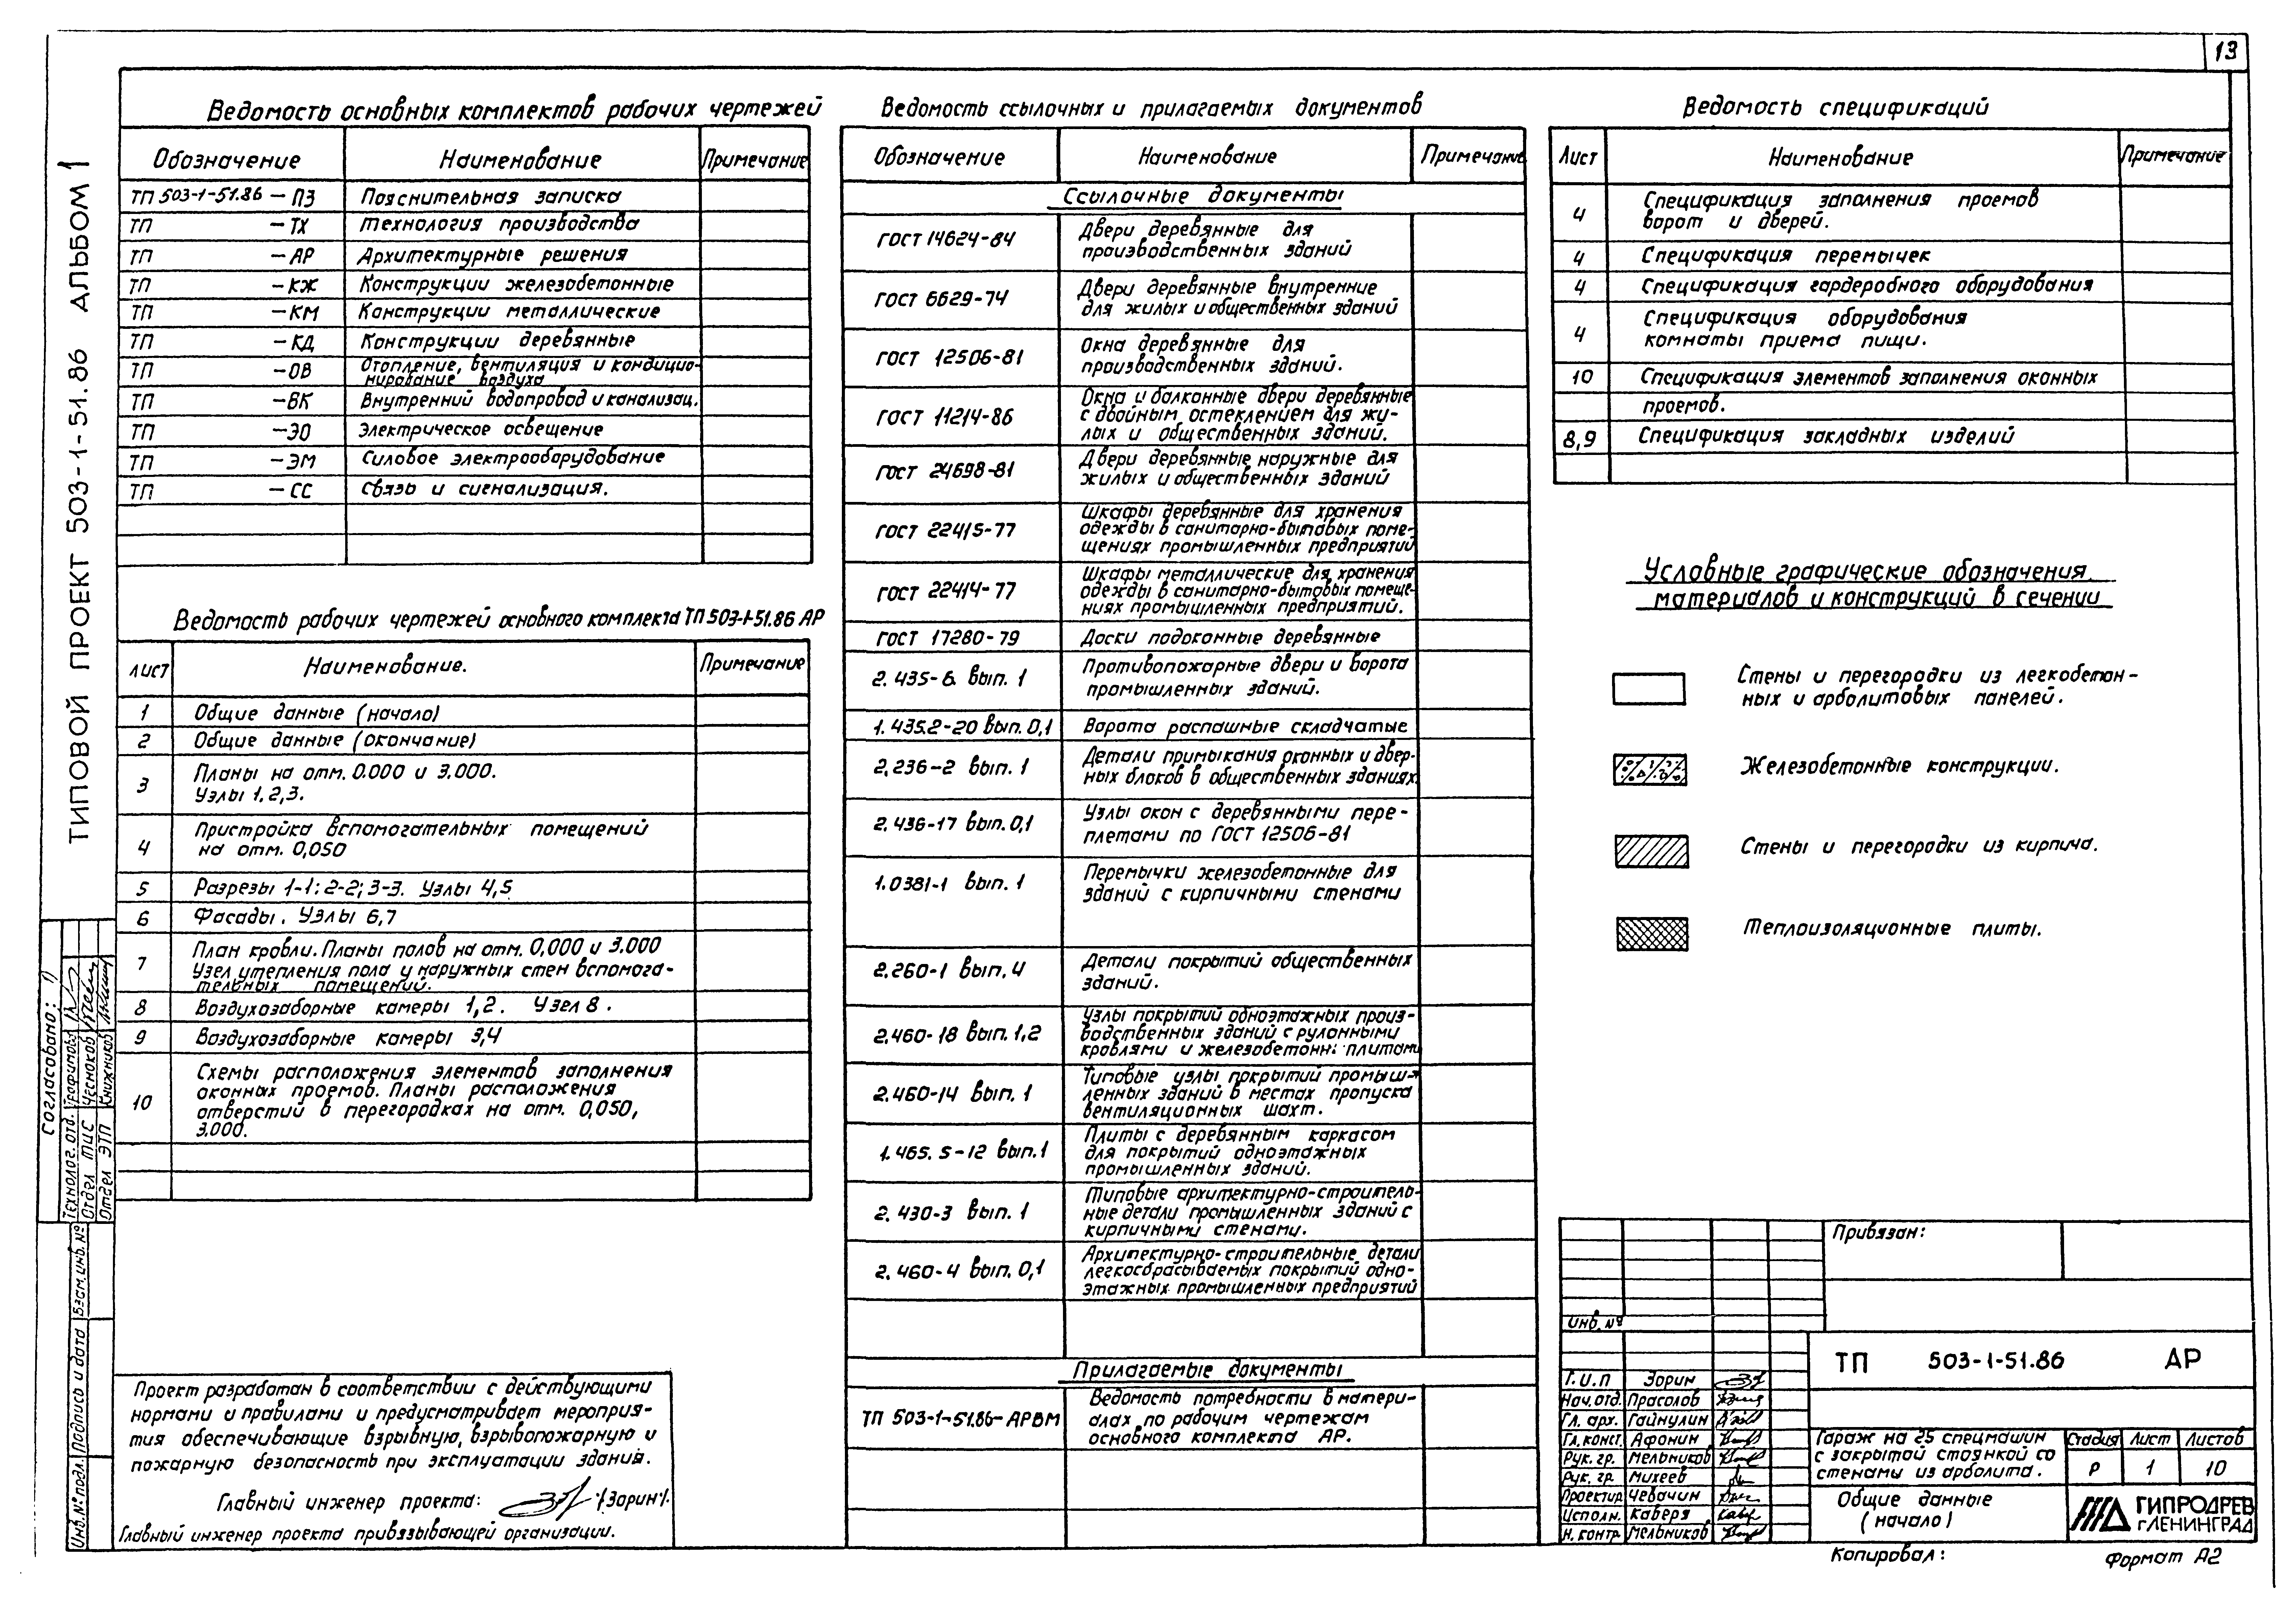 13
ТИПОВОЙ ПРОЕКТ 503-1-51.86 АЛЬБОМ 1
Ведомость основных комплектов рабочих чертежей
Обозначение Наименование Примечание
ТП 503-1-51.86 -ПЗ Пояснительная записка
ТП -ТХ Технология производства
ТП -АР Архитектурные решения
ТП -КЖ Конструкции железобетонные
ТП -КМ Конструкции металлические
ТП -КД Конструкции деревянные
ТП -ОВ Отопление, вентиляция и кондицио-
нирование воздуха
ТП -ВК Внутренний водопровод и канализац.
ТП -ЭО Электрическое освещение
ТП -ЭМ Силовое электрооборудование
ТП -СС Связь и сигнализация.
Ведомость рабочих чертежей основного комплекта ТП 503-1-51.86 АР
Лист Наименование. Примечание
1 Общие данные (начало)
2 Общие данные (окончание)
3 Планы на отм. 0.000 и 3.000.
Узлы 1,2,3.
4 Пристройка вспомогательных помещений
на отм. 0,050
5 Разрезы 1-1; 2-2; 3-3. Узлы 4,5
6 Фасады. Узлы 6,7
7 План кровли. Планы полов на отм. 0,000 и 3.000
Узел утепления пола у наружных стен вспомога-
тельных помещений.
8 Воздухозаборные камеры 1,2. Узел 8.
9 Воздухозаборные камеры 3,4
10 Схемы расположения элементов заполнения
оконных проемов. Планы расположения
отверстий в перегородках на отм. 0,050,
3.000.
Проект разработан в соответствии с действующими
нормами и правилами и предусматривает мероприя-
тия обеспечивающие взрывную, взрывопожарную и
пожарную безопасность при эксплуатации здания.
Главный инженер проекта: /Зорин/.
Главный инженер проекта привязывающей организации.
Ведомость ссылочных и прилагаемых документов
Обозначение Наименование Примечание
Ссылочные документы
ГОСТ 14624-84 Двери деревянные для
производственных зданий
ГОСТ 6629-74 Двери деревянные внутренние
для жилых и общественных зданий
ГОСТ 12506-81 Окна деревянные для
производственных зданий.
ГОСТ 11214-86 Окна и балконные двери деревянные
с двойным остеклением для жи-
лых и общественных зданий.
ГОСТ 24698-81 Двери деревянные наружные для
жилых и общественных зданий
ГОСТ 22415-77 Шкафы деревянные для хранения
одежды в санитарно-бытовых поме-
щениях промышленных предприятий
ГОСТ 22414-77 Шкафы металлические для хранения
одежды в санитарно-бытовых помеще-
ниях промышленных предприятий.
ГОСТ 17280-79 Доски подоконные деревянные
2.435-6 вып. 1 Противопожарные двери и ворота
промышленных зданий.
1.435.2-20 вып. 0,1 Ворота распашные складчатые
2.236-2 вып. 1 Детали примыкания оконных и двер-
ных блоков в общественных зданиях.
2.436-17 вып. 0,1 Узлы окон с деревянными пере-
плетами по ГОСТ 12506-81
1.0381-1 вып. 1 Перемычки железобетонные для
зданий с кирпичными стенами
2.260-1 вып. 4 Детали покрытий общественных
зданий.
2.460-18 вып. 1,2 Узлы покрытий одноэтажных произ-
водственных зданий с рулонными
кровлями и железобетонн. плитами
2.460-14 вып. 1 Типовые узлы покрытий промыш-
ленных зданий в местах пропуска
вентиляционных шахт.
1.465.5-12 вып. 1 Плиты с деревянным каркасом
для покрытий одноэтажных
промышленных зданий.
2.430-3 вып. 1 Типовые архитектурно-строитель-
ные детали промышленных зданий с
кирпичными стенами.
2.460-4 вып. 0,1 Архитектурно-строительные детали
легкосбрасываемых покрытий одно-
этажных промышленных предприятий
Прилагаемые документы
ТП 503-1-51.86-АРВМ Ведомость потребности в матери-
алах по рабочим чертежам
основного комплекта АР.
Ведомость спецификаций
Лист Наименование Примечание
4 Спецификация заполнения проемов
ворот и дверей.
4 Спецификация перемычек
4 Спецификация гардеробного оборудования
4 Спецификация оборудования
комнаты приема пищи.
10 Спецификация элементов заполнения оконных
проемов.
8,9 Спецификация закладных изделий
Условные графические обозначения
материалов и конструкций в сечении
Стены и перегородки из легкобетон-
ных и арболитовых панелей.
Железобетонные конструкции.
Стены и перегородки из кирпича.
Теплоизоляционные плиты.
Привязан:
Инв. №
ТП 503-1-51.86 АР
Т.И.П Зорин
Нач. отд. Прасолов
Гл. арх. Гайнулин
Гл. конст. Афонин
Рук. гр. Мельников
Рук. гр. Михеев
Проектир. Чевачин
Исполн. Каверя
Н. контр. Мельников
Гараж на 25 спецмашин
с закрытой стоянкой со
стенами из арболита.
Стадия Лист Листов
Р 1 10
Общие данные
(начало)
ГИПРОДРЕВ
г. ЛЕНИНГРАД
Копировал:
Формат А2
Согласовано:
Технолог. отд. Трофимова
Отдел ТИС Чесноков
Отдел ЭТП Книжников
Взам. инв. №
Подпись и дата
Инв. № подл.